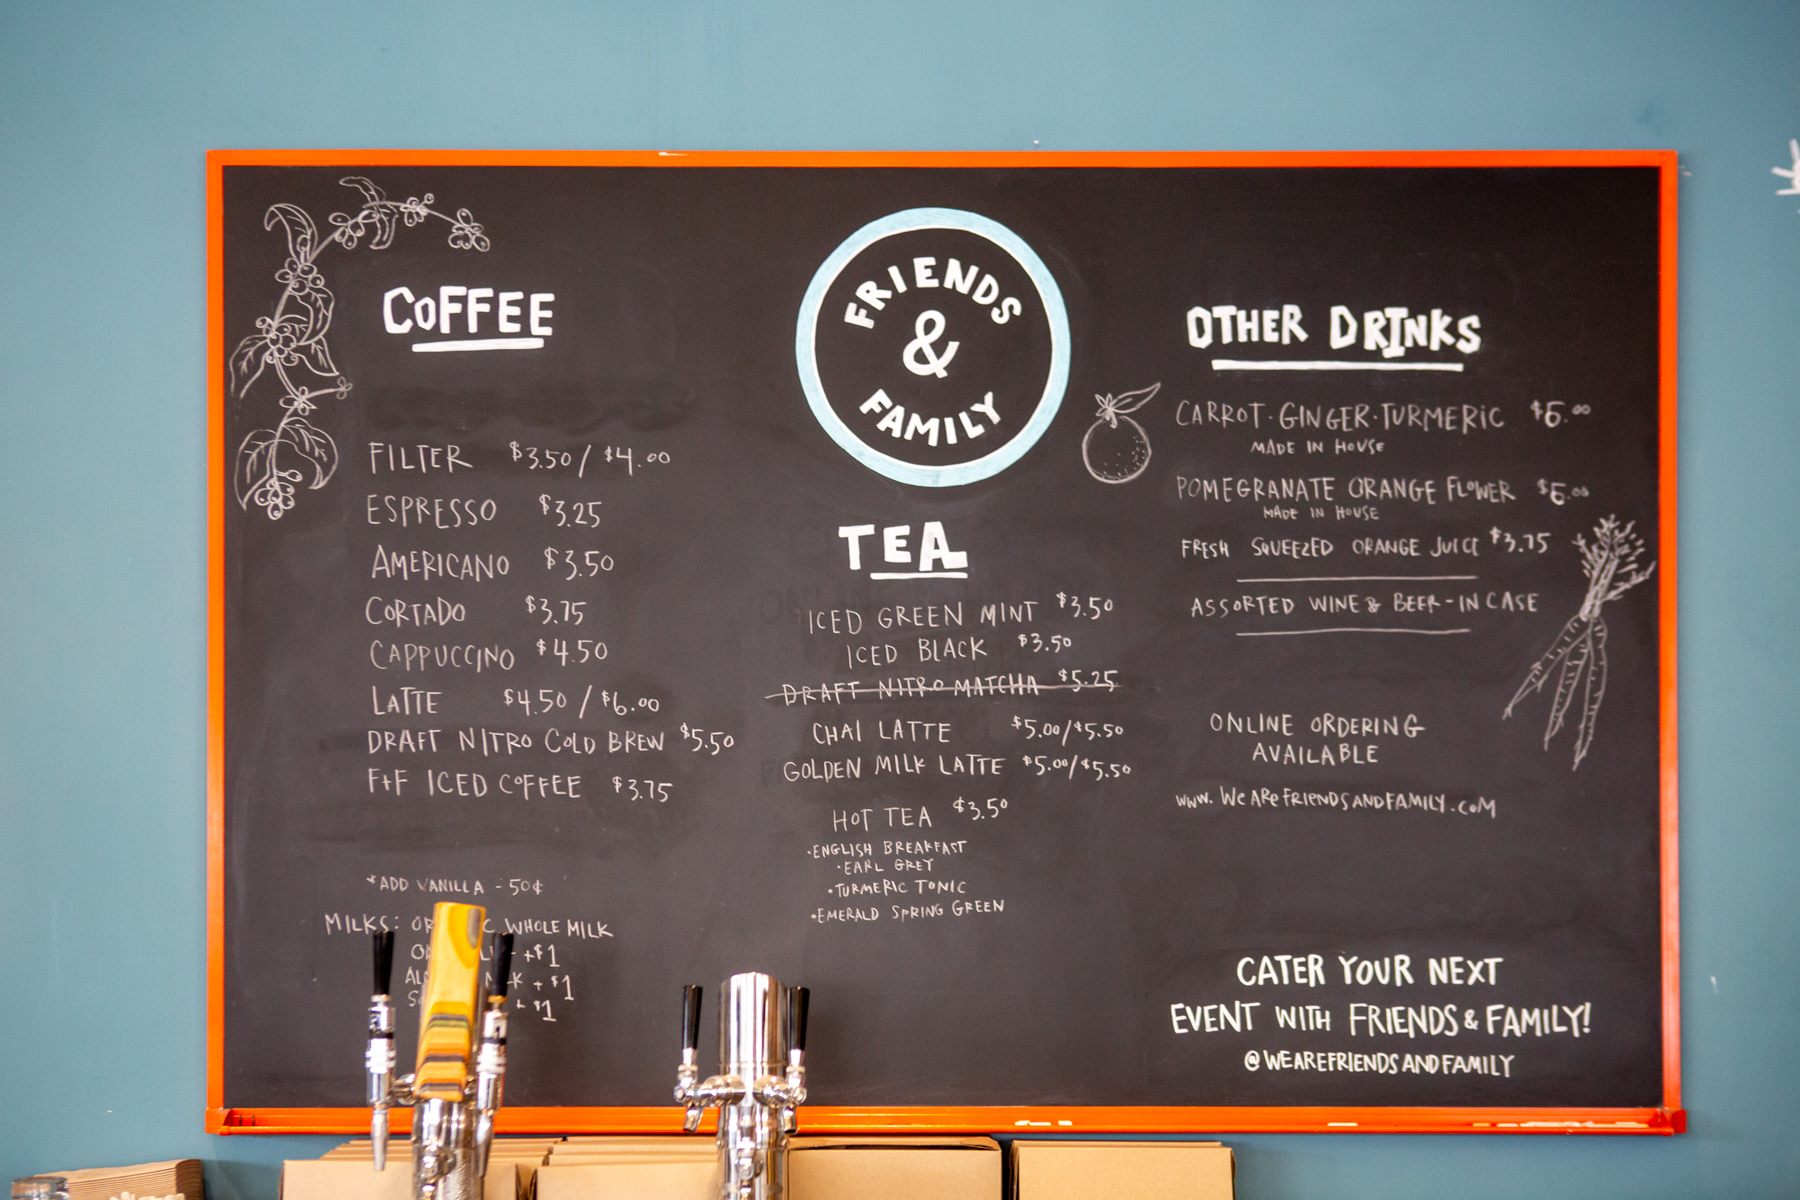 COFFEE
FILTER $3.50 / $4.00
ESPRESSO $3.25
AMERICANO $3.50
CORTADO $3.75
CAPPUCCINO $4.50
LATTE $4.50 / $6.00
DRAFT NITRO COLD BREW $5.50
F+F ICED COFFEE $3.75
*ADD VANILLA - 50¢
MILKS: WHOLE MILK
+$1
+$1
+$1
FRIENDS
&
FAMILY
TEA
ICED GREEN MINT $3.50
ICED BLACK $3.50
DRAFT NITRO MATCHA $5.25
CHAI LATTE $5.00/$5.50
GOLDEN MILK LATTE $5.00/$5.50
HOT TEA $3.50
·ENGLISH BREAKFAST
·EARL GREY
·TURMERIC TONIC
·EMERALD SPRING GREEN
OTHER DRINKS
CARROT·GINGER·TURMERIC $6.00
MADE IN HOUSE
POMEGRANATE ORANGE FLOWER $6.00
MADE IN HOUSE
FRESH SQUEEZED ORANGE JUICE $3.75
ASSORTED WINE & BEER-IN CASE
ONLINE ORDERING
AVAILABLE
WWW.WEAREFRIENDSANDFAMILY.COM
CATER YOUR NEXT
EVENT WITH FRIENDS & FAMILY!
@WEAREFRIENDSANDFAMILY